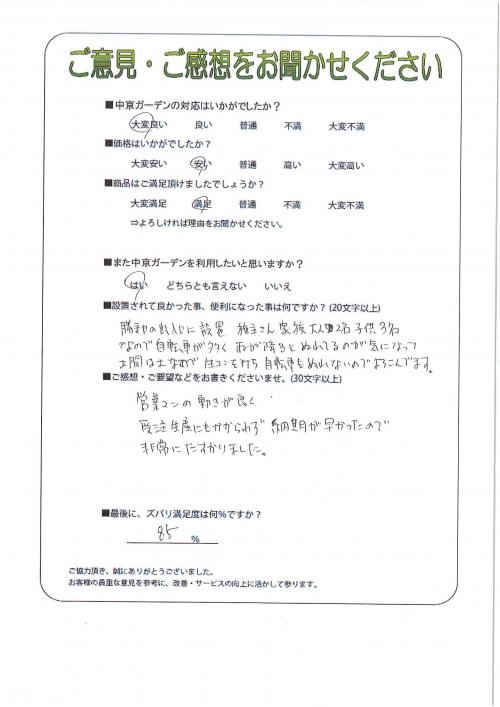 ご意見・ご感想をお聞かせください
■中京ガーデンの対応はいかがでしたか？
大変良い 良い 普通 不満 大変不満
■価格はいかがでしたか？
大変安い 安い 普通 高い 大変高い
■商品はご満足頂けましたでしょうか？
大変満足 満足 普通 不満 大変不満
⇒よろしければ理由をお聞かせください。
■また中京ガーデンを利用したいと思いますか？
はい どちらとも言えない いいえ
■設置されて良かった事、便利になった事は何ですか？(20文字以上)
勝手口の出入口に設置 施主さん家族大人2名子供3名
なので自転車が多く 雨が降るとぬれてるのが気になって
土間は土なので生コンを打ち自転車もぬれないのでよろこんでます。
■ご感想・ご要望などをお書きくださいませ。(30文字以上)
営業マンの動きが良く
受注生産にもかかわらず納期が早かったので
非常にたすかりました。
■最後に、ズバリ満足度は何%ですか？
85 %
ご協力頂き、誠にありがとうございました。
お客様の貴重な意見を参考に、改善・サービスの向上に活かして参ります。